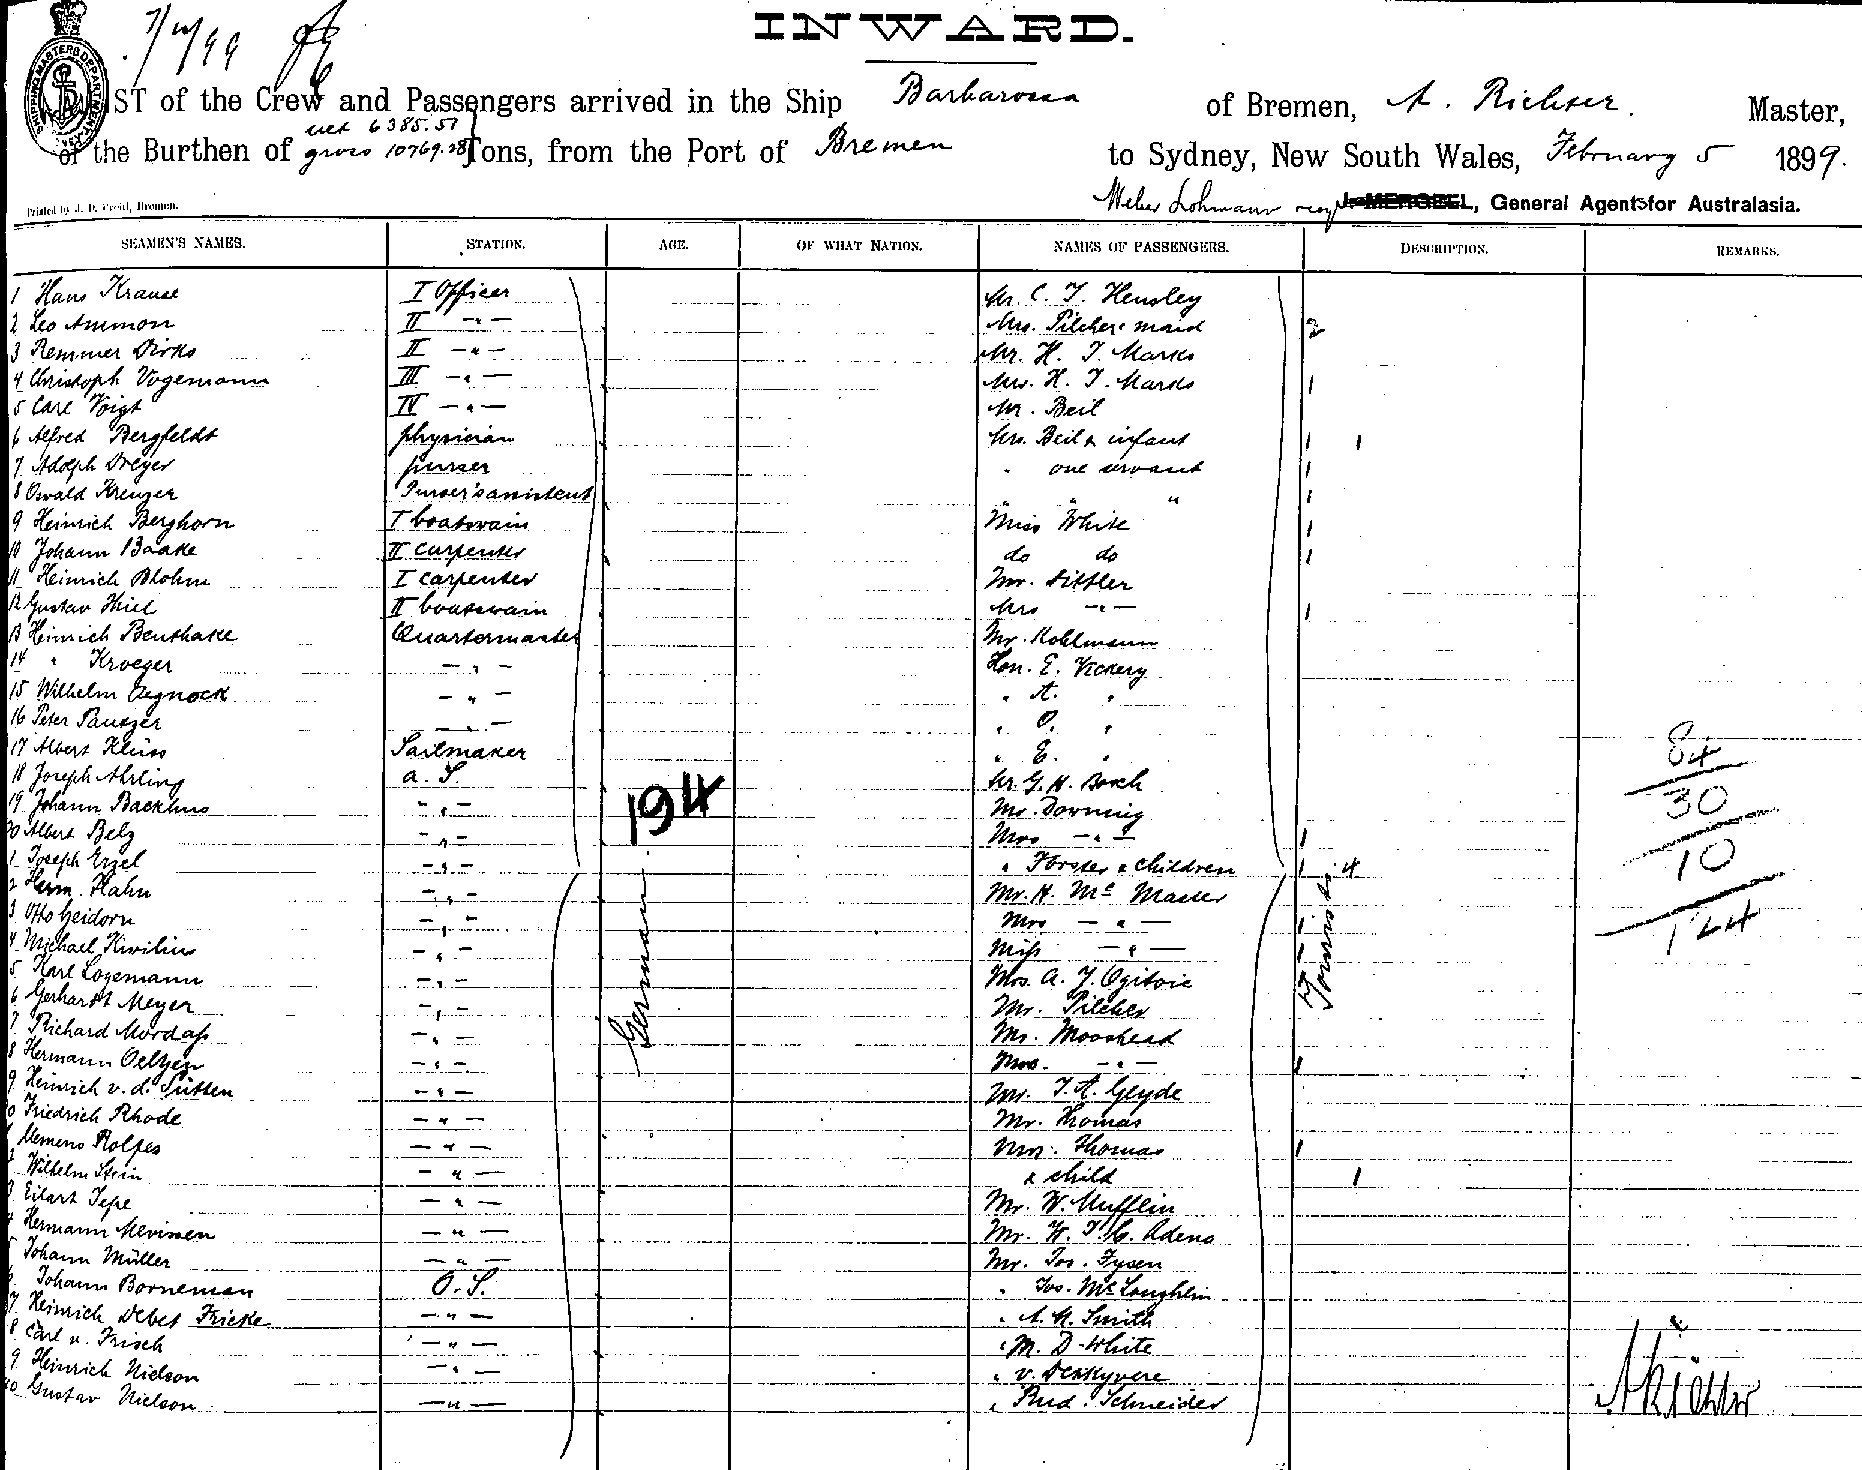 INWARD.
LIST of the Crew and Passengers arrived in the Ship Barbarossa of Bremen, A. Richter. Master,
of the Burthen of net 6385.51 gross 10769.28 Tons, from the Port of Bremen to Sydney, New South Wales, February 5 1899.
Weber Lohmann General Agents for Australasia.
SEAMEN'S NAMES. STATION. AGE. OF WHAT NATION. NAMES OF PASSENGERS. DESCRIPTION. REMARKS.
1 Hans Krause I Officer Mr. C. T. Hensley
2 Leo Ammon II -"- Mrs. Pilcher maid 2
3 Remmer Dirks II -"- Mr. H. J. Marks
4 Christoph Vogemann III -"- Mrs. H. J. Marks 1
5 Carl Voigt IV -"- Mr. Beil
6 Alfred Bergfeldt physician Mrs. Beil & infant 1 1
7 Adolph Dreyer purser " one servant 1
8 Oswald Kreuzer Purser's assistent " " " 1
9 Heinrich Berghorn I boatswain Miss White 1
10 Johann Baake II carpenter do do 1
11 Heinrich Blohm I carpenter Mr. Sittler
12 Gustav Thiel II boatswain Mrs -"- 1
13 Heinrich Benthake Quartermaster Mr. Kohlmann
14 " Kroeger -"- Hon. E. Vickery
15 Wilhelm -"- " A. "
16 Peter -"- " O. "
17 Albert Klüss Sailmaker " E. "
18 Joseph Ahrling a. S. Mr. G. H. Bosch
19 Johann Backhus -"- Mr. Downing
20 Albert Belz -"- Mrs -"- 1
1 Joseph Erzel -"- " Forster & children 1 4
2 Herm. Hahn -"- Mr. H. Mc Master
3 Otto Heidorn -"- Mrs -"- 1
4 Michael Kiwilius -"- Miss -"- 1
5 Karl Logemann -"- Mrs. A. J. Ogilvie 1
6 Gerhardt Meyer -"- Mr. Pilcher
7 Richard Mordass -"- Mr. Moorhead
8 Hermann Oeltjen -"- Mrs. -"- 1
9 Heinrich v. d. Sütten -"- Mr. J. A. Geyde
0 Friedrich Rhode -"- Mr. Thomas
1 Clemens Rolfes -"- Mrs. Thomas 1
2 Wilhelm Stein -"- & child 1
3 Eilart Tepe -"- Mr. W. Mufflin
4 Hermann Mevissen -"- Mr. H. J. C. Adens
5 Johann Müller -"- Mr. Jos. Tysen
6 Johann Borneman O. S. " Jos. McLoughlin
7 Heinrich Debet Fricke -"- " A. M. Smith
8 Carl v. Frisch -"- " M. D. White
9 Heinrich Nielson -"- "
40 Gustav Nielson -"- " Rud. Schneider
194
German
Tourists
84
30
10
124
A Richter